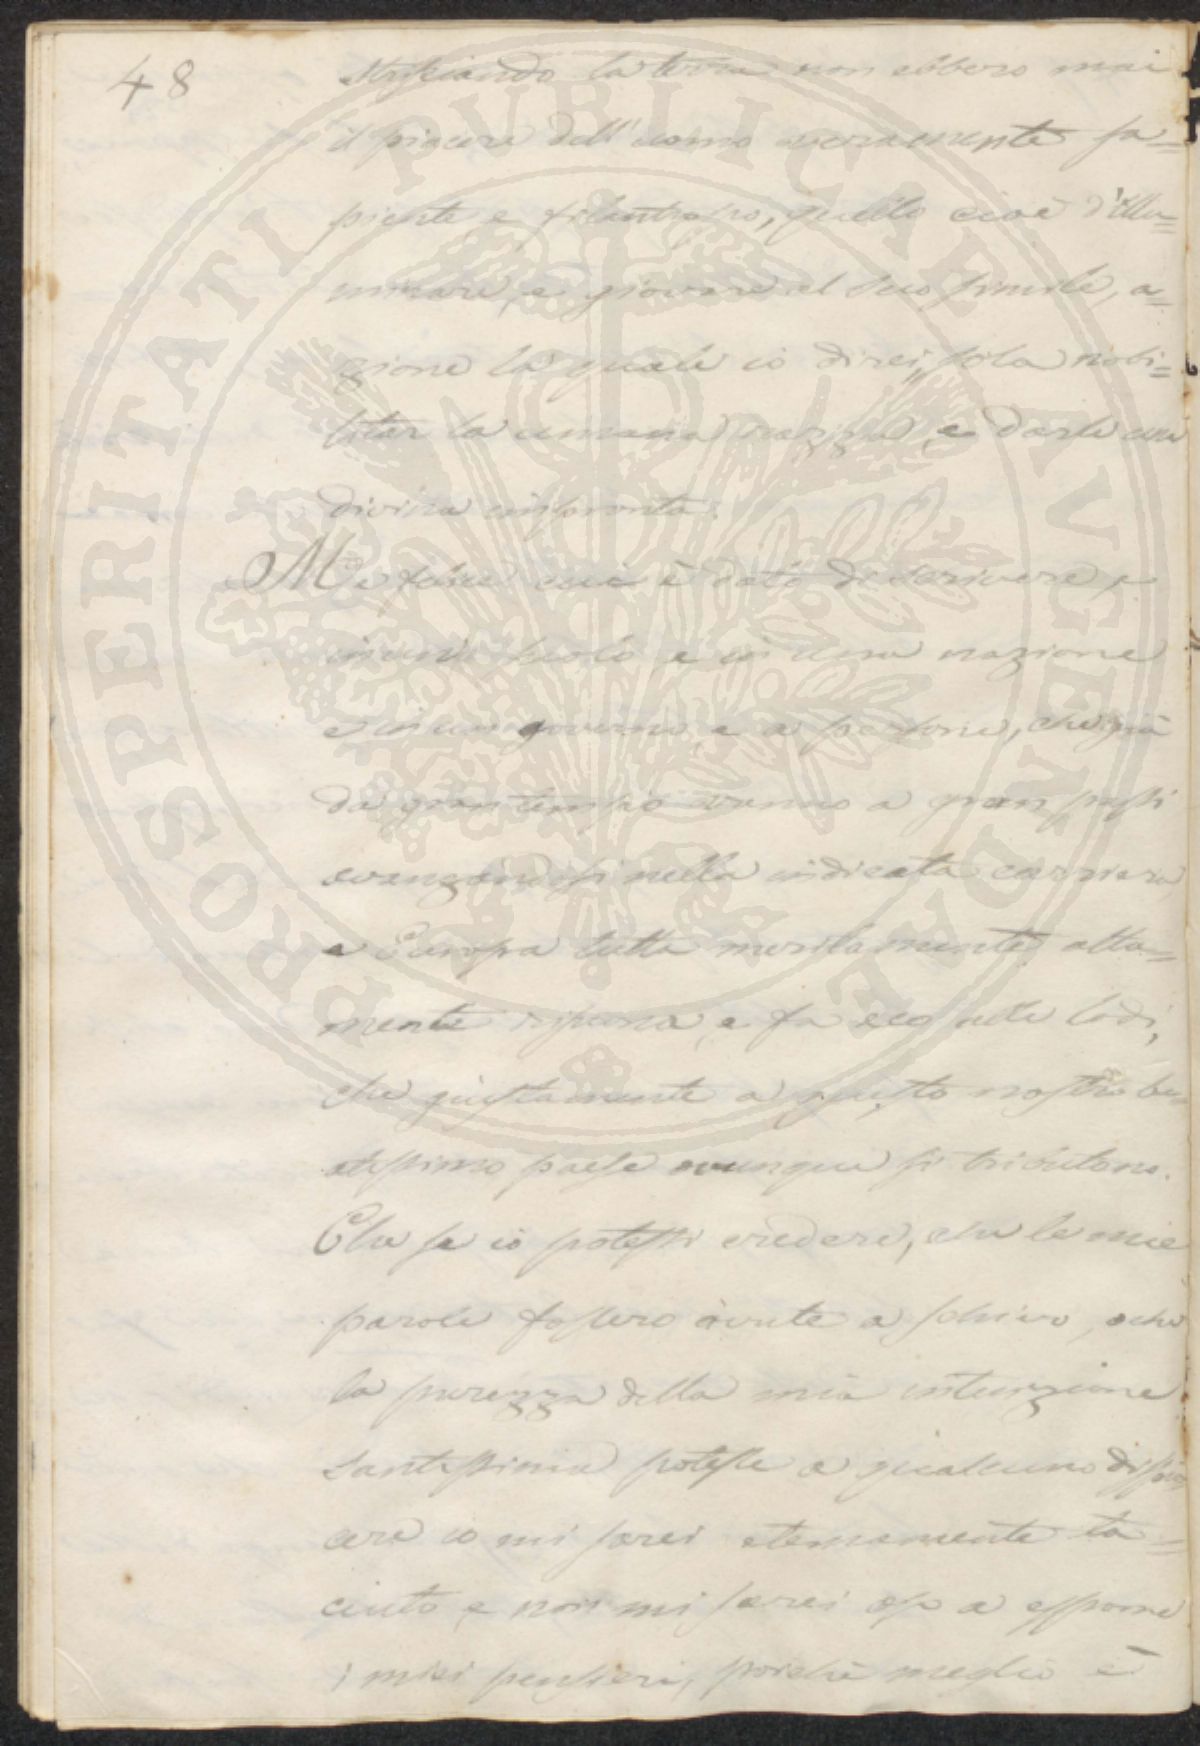 48
strisciando la terra non ebbero mai
il piacere dell'uomo veramente sa=
piente e filantropo, quello cioè d'illu=
minare, e giovare al suo simile, a=
zione la quale io direi, sola nobi=
litar la umana razza, e darle una
divina impronta.
Me felice cui è dato di scrivere e
in un secolo e in una nazione
e in un governo, e a persone, che già
da gran tempo vanno a gran passi
avanzandosi nella indicata carriera,
e Europa tutta meritamente alta=
mente risuona, e fa eco alle lodi,
che giustamente a questo nostro be=
atissimo paese ovunque si tributano.
Che se io potessi credere, che le mie
parole fossero avute a schivo, o che
la purezza della mia intenzione
santissima potesse a qualcuno dispia
cere io mi sarei eternamente ta=
ciuto, e non mi sarei oso a esporre
i miei pensieri, poichè meglio è
PROSPERITATI PUBLICAE AVGENDAE